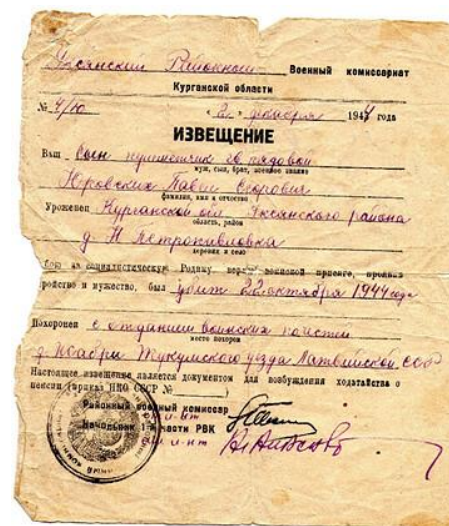 Уксянский Районный Военный комиссариат
Курганской области
№ 4/ю « 2 » декабря 1944 года
ИЗВЕЩЕНИЕ
Ваш сын пулеметчик гв. рядовой
муж, сын, брат, военное звание
Юровских Павел Егорович
фамилия, имя и отчество
Уроженец Курганской обл. Уксянского района
область, район
д. Н Петропавловка
деревня и село
бою за социалистическую Родину, верный воинской присяге, проявив
геройство и мужество, был убит 22 октября 1944 года
Похоронен с отданием воинских почестей
место похорон
д. Ноабри Тукумского уезда Латвийской ССР
Настоящее извещение является документом для возбуждения ходатайства о
пенсии (приказ НКО СССР № )
Районный военный комиссар
Начальник 1-й части РВК